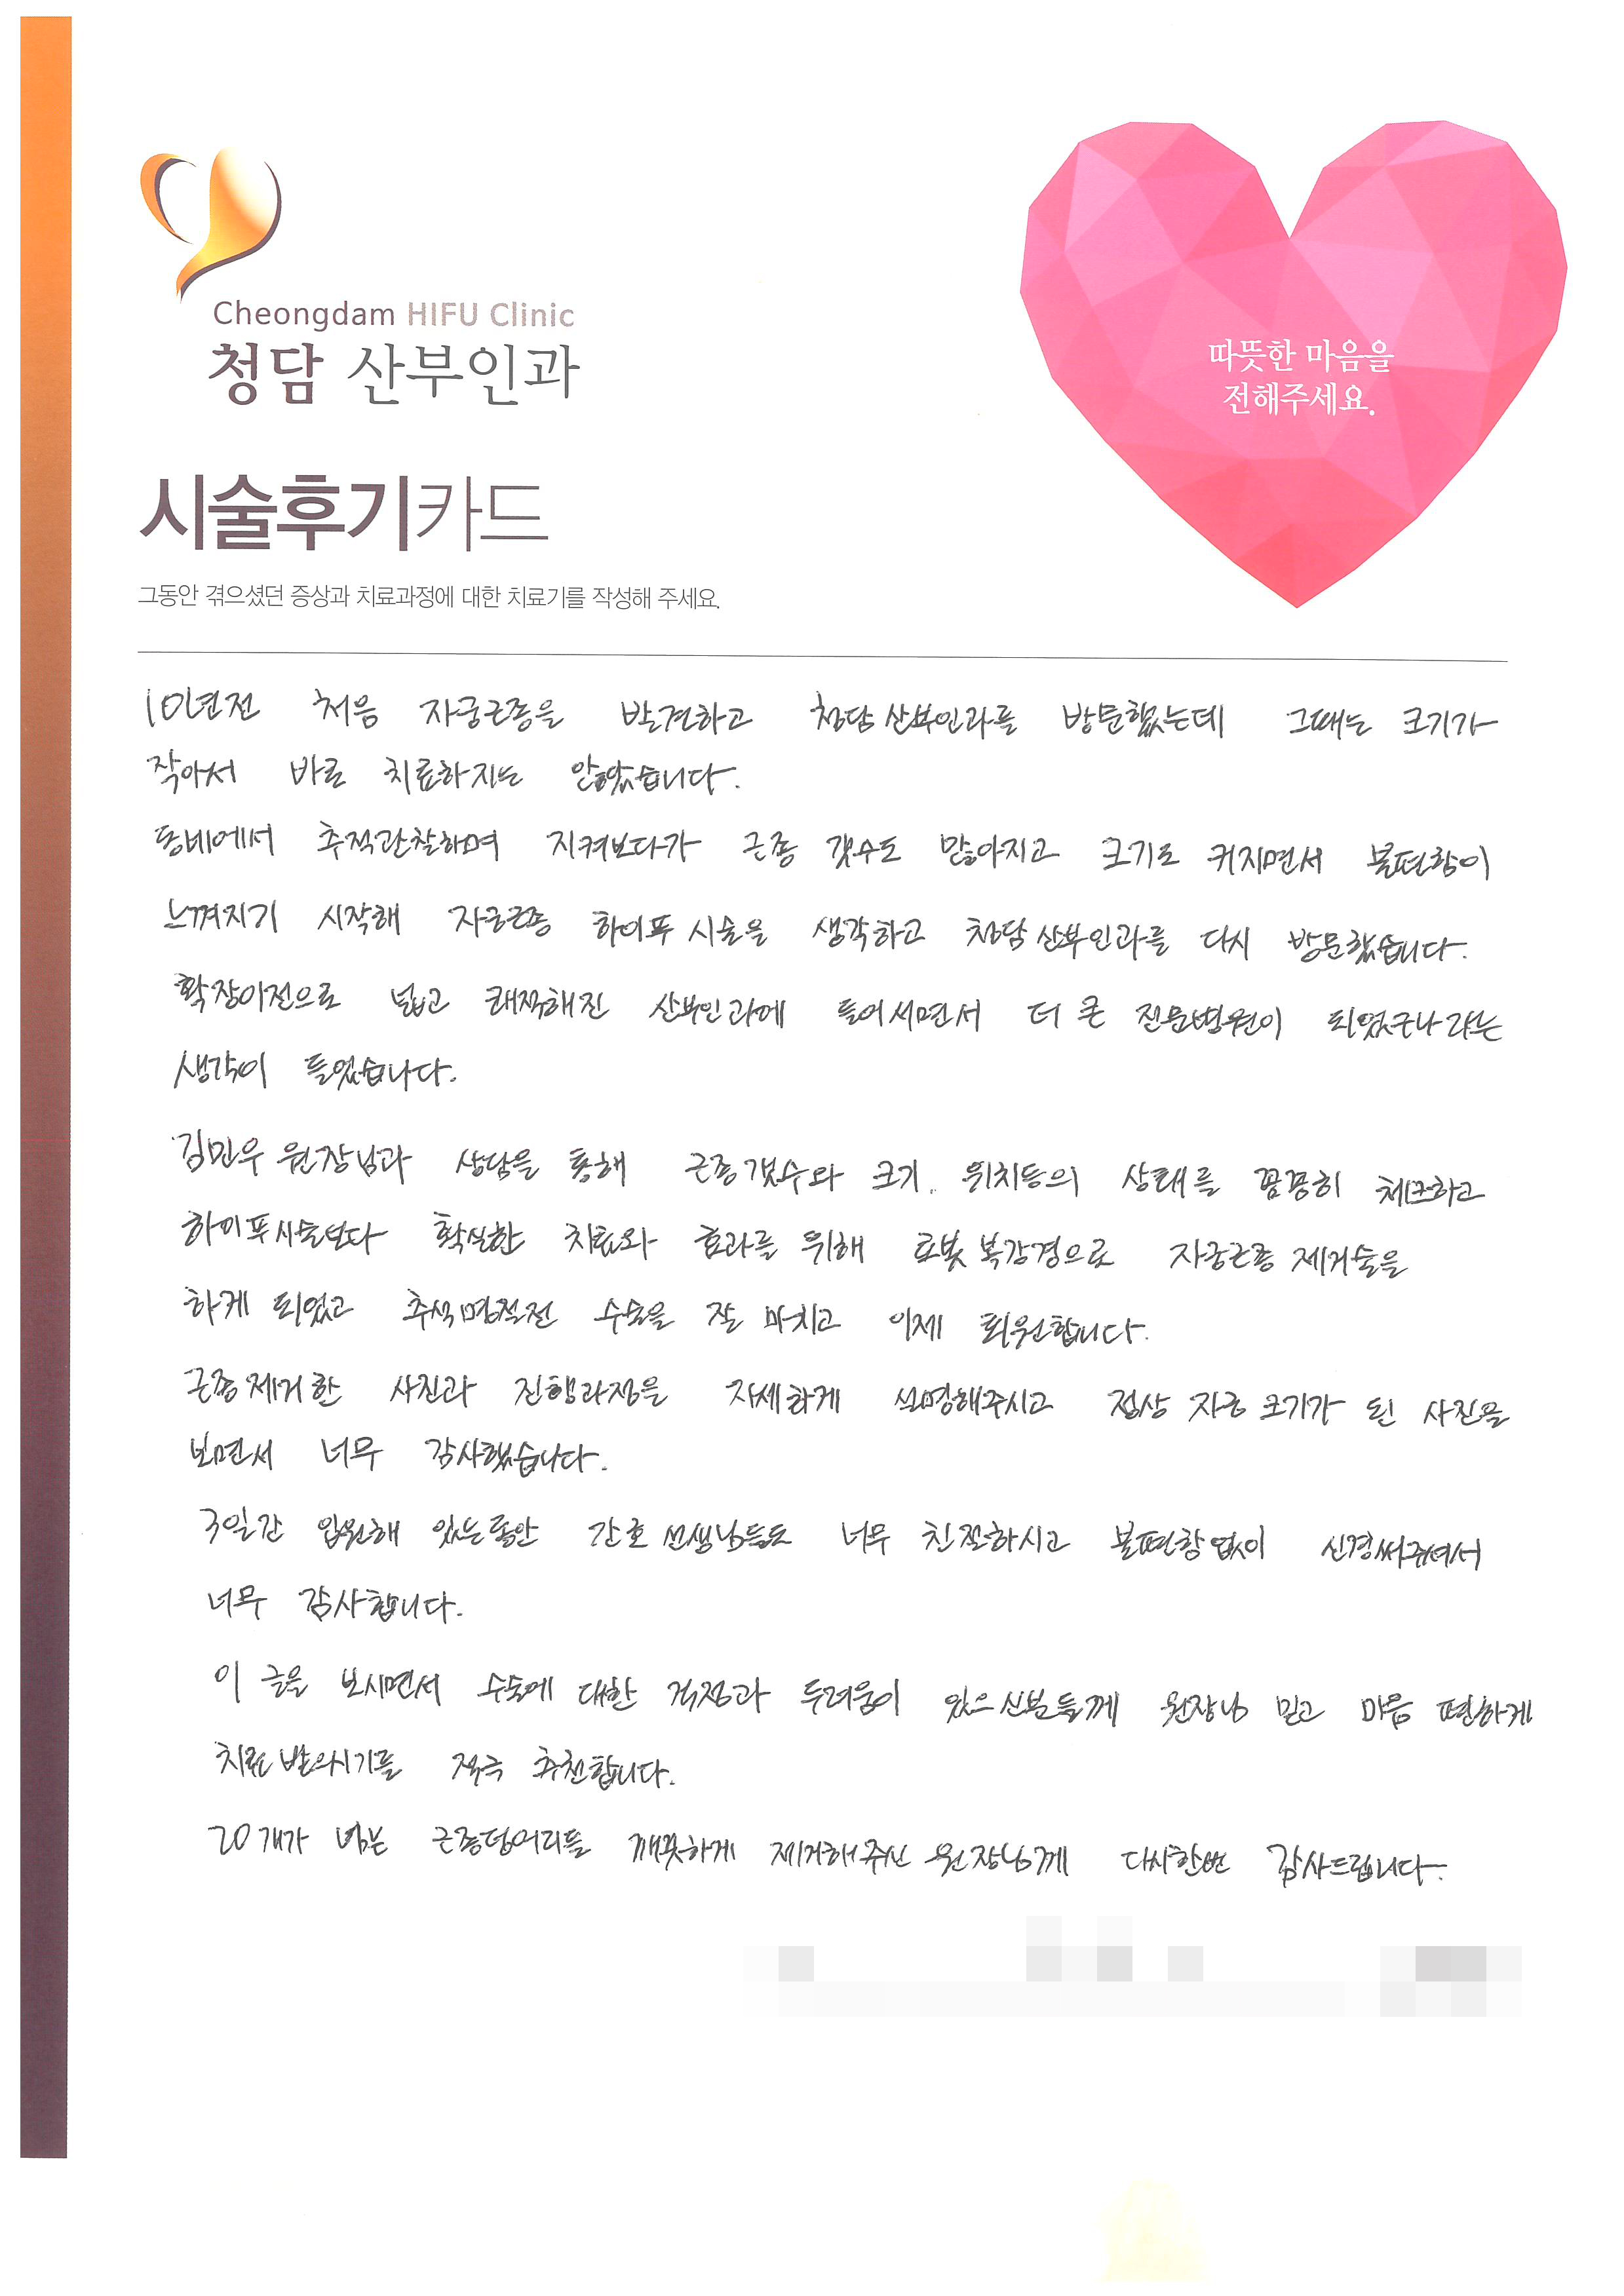 Cheongdam HIFU Clinic
청담 산부인과
따뜻한 마음을
전해주세요.
시술후기카드
그동안 겪으셨던 증상과 치료과정에 대한 치료기를 작성해 주세요.
10년전 처음 자궁근종을 발견하고 청담산부인과를 방문했었는데 그때는 크기가
작아서 바로 치료하지는 않았습니다.
동네에서 추적관찰하며 지켜보다가 근종 갯수도 많아지고 크기도 커지면서 불편함이
느껴지기 시작해 자궁근종 하이푸 시술을 생각하고 청담산부인과를 다시 방문했습니다.
확장이전으로 넓고 쾌적해진 산부인과에 들어서면서 더 큰 전문병원이 되었구나 라는
생각이 들었습니다.
김민우 원장님과 상담을 통해 근종갯수와 크기, 위치등의 상태를 꼼꼼히 체크하고
하이푸시술보다 확실한 치료와 효과를 위해 로봇 복강경으로 자궁근종 제거술을
하게 되었고 추석명절전 수술을 잘 마치고 이제 퇴원합니다.
근종제거한 사진과 진행과정을 자세하게 설명해주시고 정상 자궁 크기가 된 사진을
보면서 너무 감사했습니다.
3일간 입원해 있는동안 간호선생님들도 너무 친절하시고 불편함없이 신경써주셔서
너무 감사합니다.
이 글을 보시면서 수술에 대한 걱정과 두려움이 있으신분들께 원장님 믿고 마음 편하게
치료받으시기를 적극 추천합니다.
20개가 넘는 근종덩어리들 깨끗하게 제거해주신 원장님께 다시한번 감사드립니다.